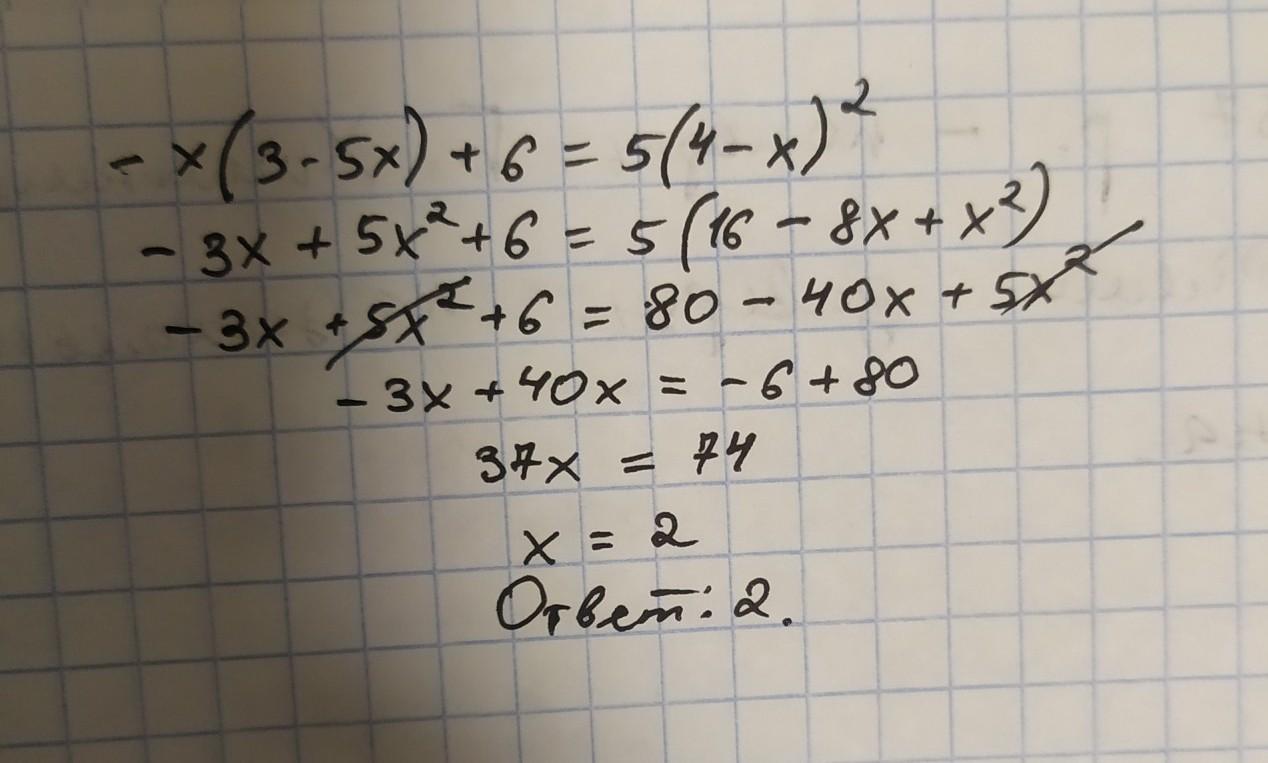 - x(3 - 5x) + 6 = 5(4 - x)²
- 3x + 5x² + 6 = 5(16 - 8x + x²)
- 3x + 5x² + 6 = 80 - 40x + 5x²
- 3x + 40x = - 6 + 80
37x = 74
x = 2
Ответ: 2.